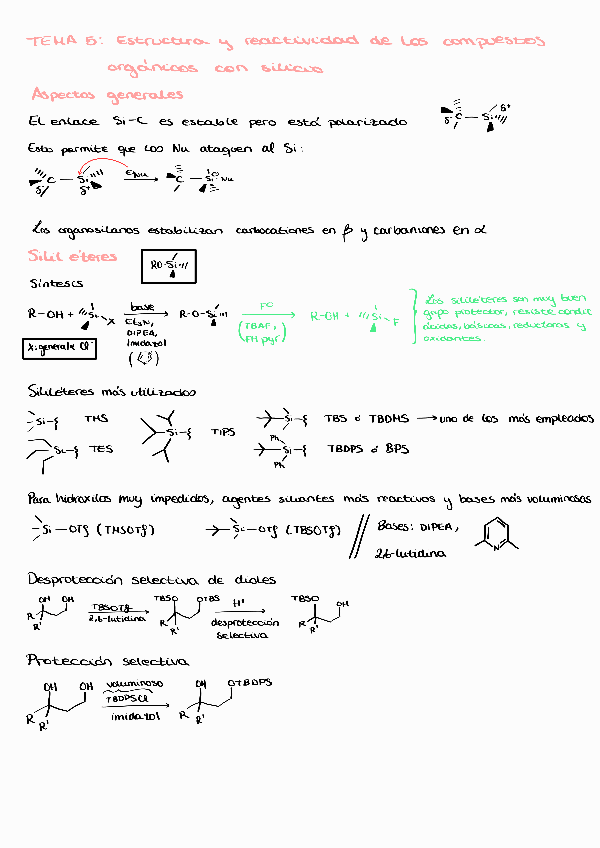 TEMA 5: Estructura y reactividad de los compuestos
orgánicos con silicio
Aspectos generales
El enlace Si-C es estable pero está polarizado
δ- C — Si δ+
Esto permite que los Nu ataquen al Si:
C — Si Nu → C — Si Nu
δ- δ+
Los organosilanos estabilizan carbocationes en β y carbaniones en α
Silil éteres
RO-Si
Síntesis
R-OH + Si X base → R-O-Si F⊖ → R-OH + Si F
Et3N,
DIPEA,
imidazol
(TBAF,
FH pyr)
X: generalte Cl-
Los sililéteres son muy buen
grupo protector, resiste condic
ácidas, básicas, reductoras y
oxidantes.
Sililéteres más utilizados
Si TMS Si TIPS Si TBS ó TBDMS → uno de los más empleados
Si TES Ph Si Ph TBDPS ó BPS
Para hidroxilos muy impedidos, agentes sililantes más reactivos y bases más voluminosas
Si-OTf (TMSOTf) Si-OTf (TBSOTf) Bases: DIPEA,
2,6-lutidina
N
Desprotección selectiva de dioles
OH OH TBSOTf TBSO OTBS H+ TBSO OH
R R' 2,6-lutidina R R' desprotección R R'
selectiva
Protección selectiva
OH OH voluminoso OH OTBDPS
TBDPSCl
R R' imidazol R R'